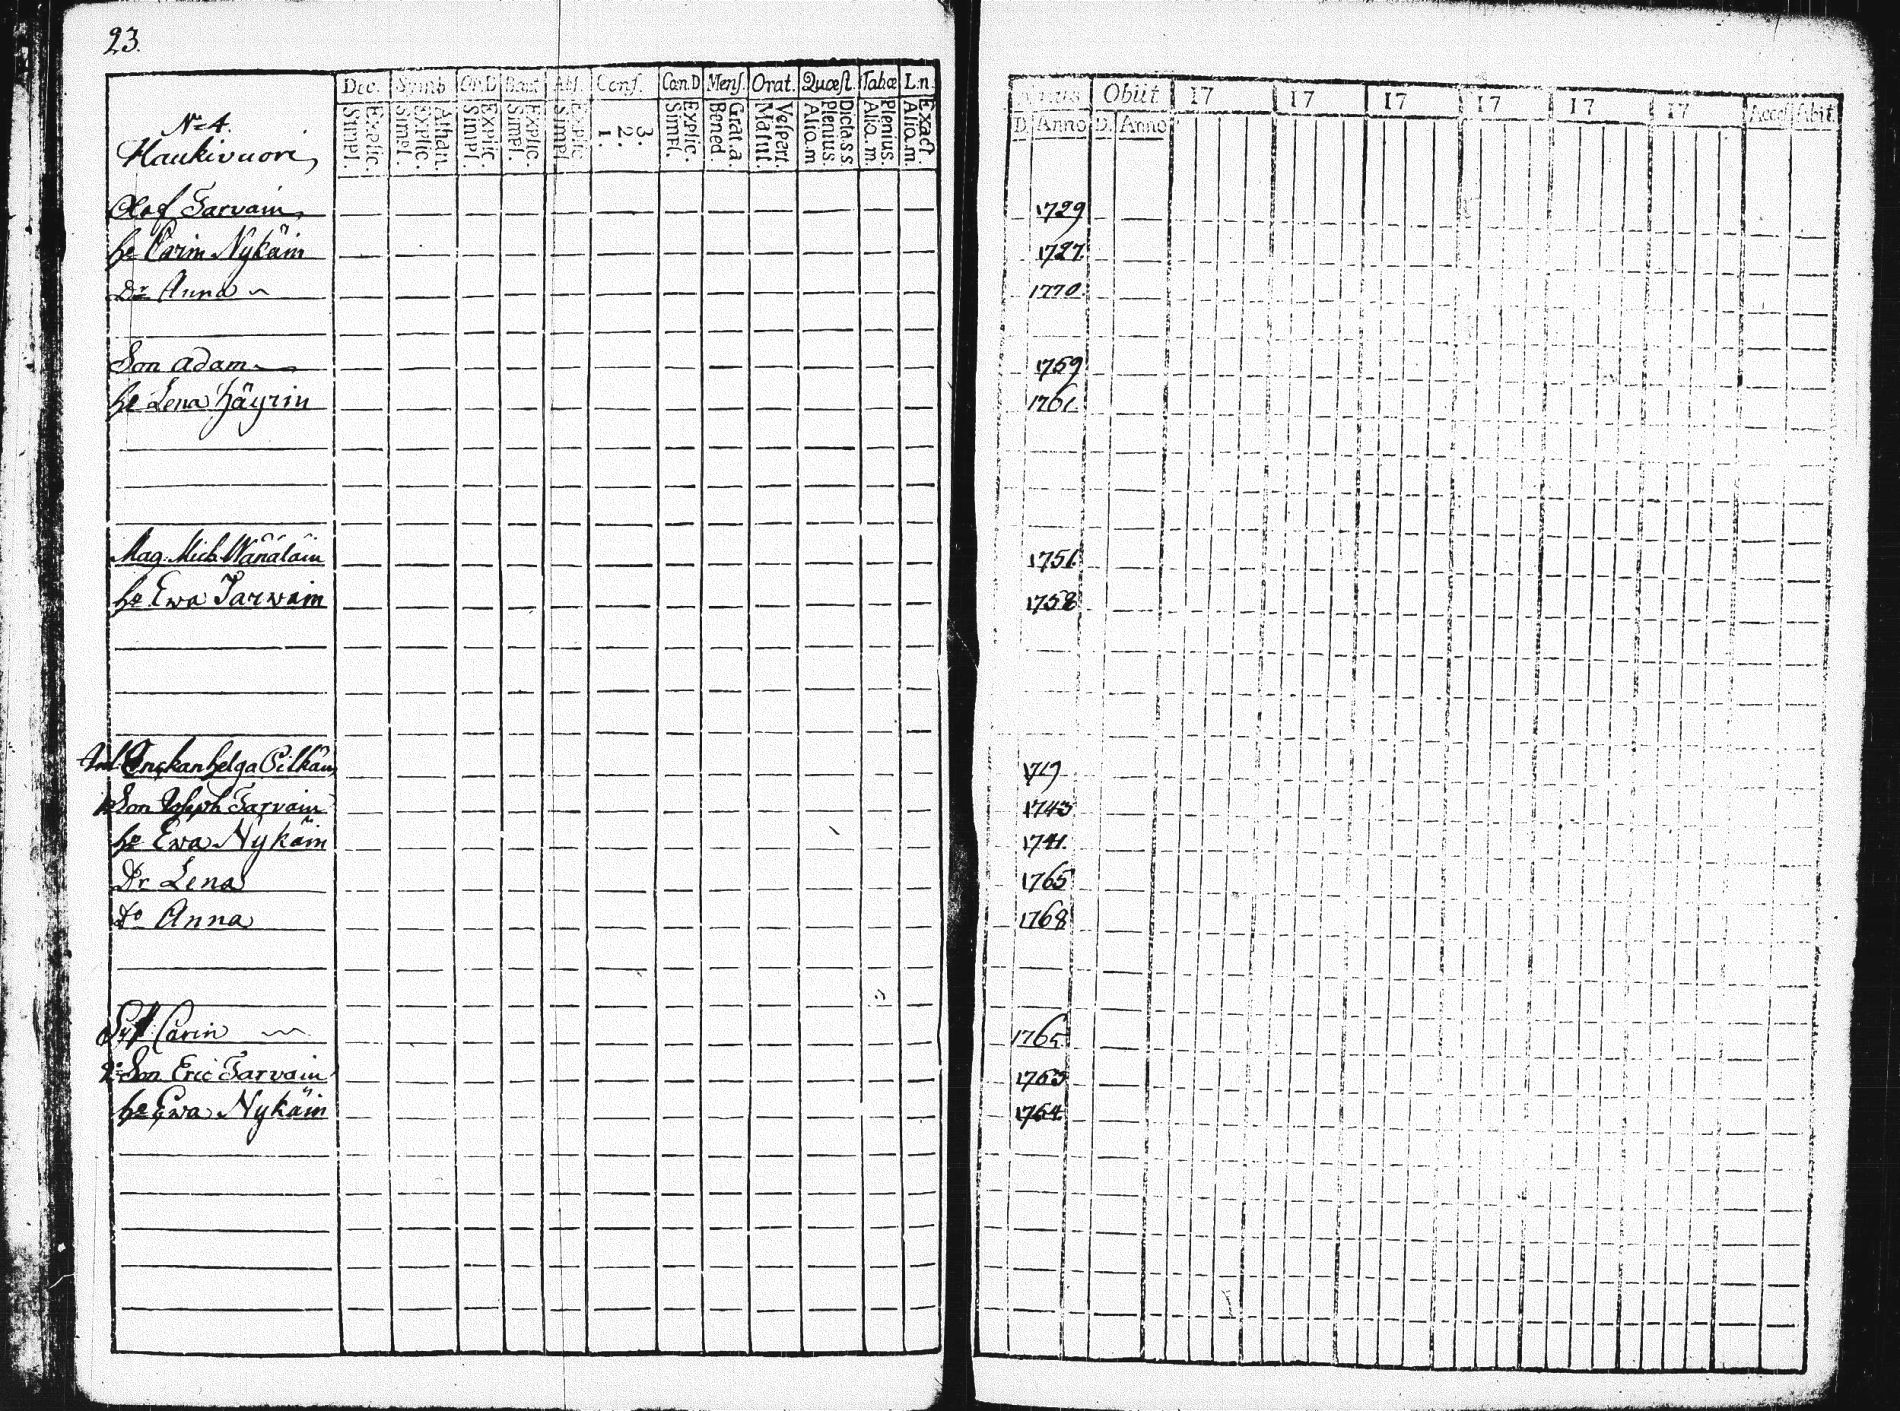 23.
Dec. Symb. Or.D Bapt. Abs. Conf. Cœn.D Mens. Orat. Quæst. Tabæ L.n.
Simpl. Explic. Simpl. Explic. Athan. Simpl. Explic. Simpl. Explic. Simpl. Explic. 1. 2. 3. Simpl. Explic. Bened. Grat.a. Matut. Vespert. Alio.m Plenius. Dicta.s.s Alio.m. Plenius. Alio.m Exact.
Obiit 17 17 17 17 17 17 Acced Abit
D. Anno D. Anno
No 4.
Haukivuori,
Olof Tarvain 1729
he Carin Nykäin 1727
Dr Anna 1770
Son Adam 1759
he Lena Häyrin 1761
Mag. Mich. Wänäläin 1751
he Ewa Tarwain 1758
Enckan helga Pilkäin 1719
Son Joseph Tarvain 1743
he Ewa Nykäin 1741
Dr Lena 1765
Do Anna 1768
Syst. Carin 1765
2. Son Eric Tarvain 1763
he Ewa Nykäin 1764